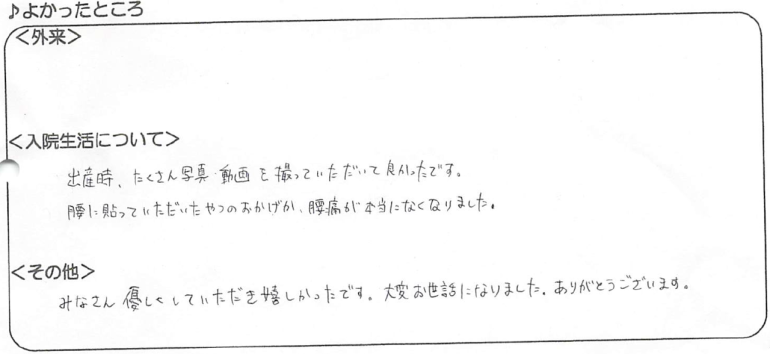 ♪よかったところ
＜外来＞
＜入院生活について＞
出産時、たくさん写真・動画を撮っていただいて良かったです。
腰に貼っていただいたやつのおかげか、腰痛が本当になくなりました。
＜その他＞
みなさん優しくしていただき嬉しかったです。大変お世話になりました。ありがとうございます。